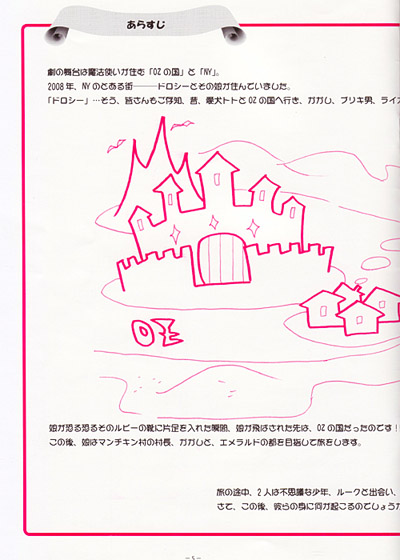 あらすじ
劇の舞台は魔法使いが住む「OZの国」と「NY」。
2008年、NYのとある街―――ドロシーとその娘が住んでいました。
「ドロシー」…そう、皆さんもご存知、昔、愛犬トトとOZの国へ行き、カカシ、ブリキ男、ライオ
OZ
娘が恐る恐るそのルビーの靴に片足を入れた瞬間、娘が飛ばされた先は、OZの国だったのです！
この後、娘はマンチキン村の村長、カカシと、エメラルドの都を目指して旅をします。
旅の途中、2人は不思議な少年、ルークと出会い、
さて、この後、彼らの身に何が起こるのでしょうか